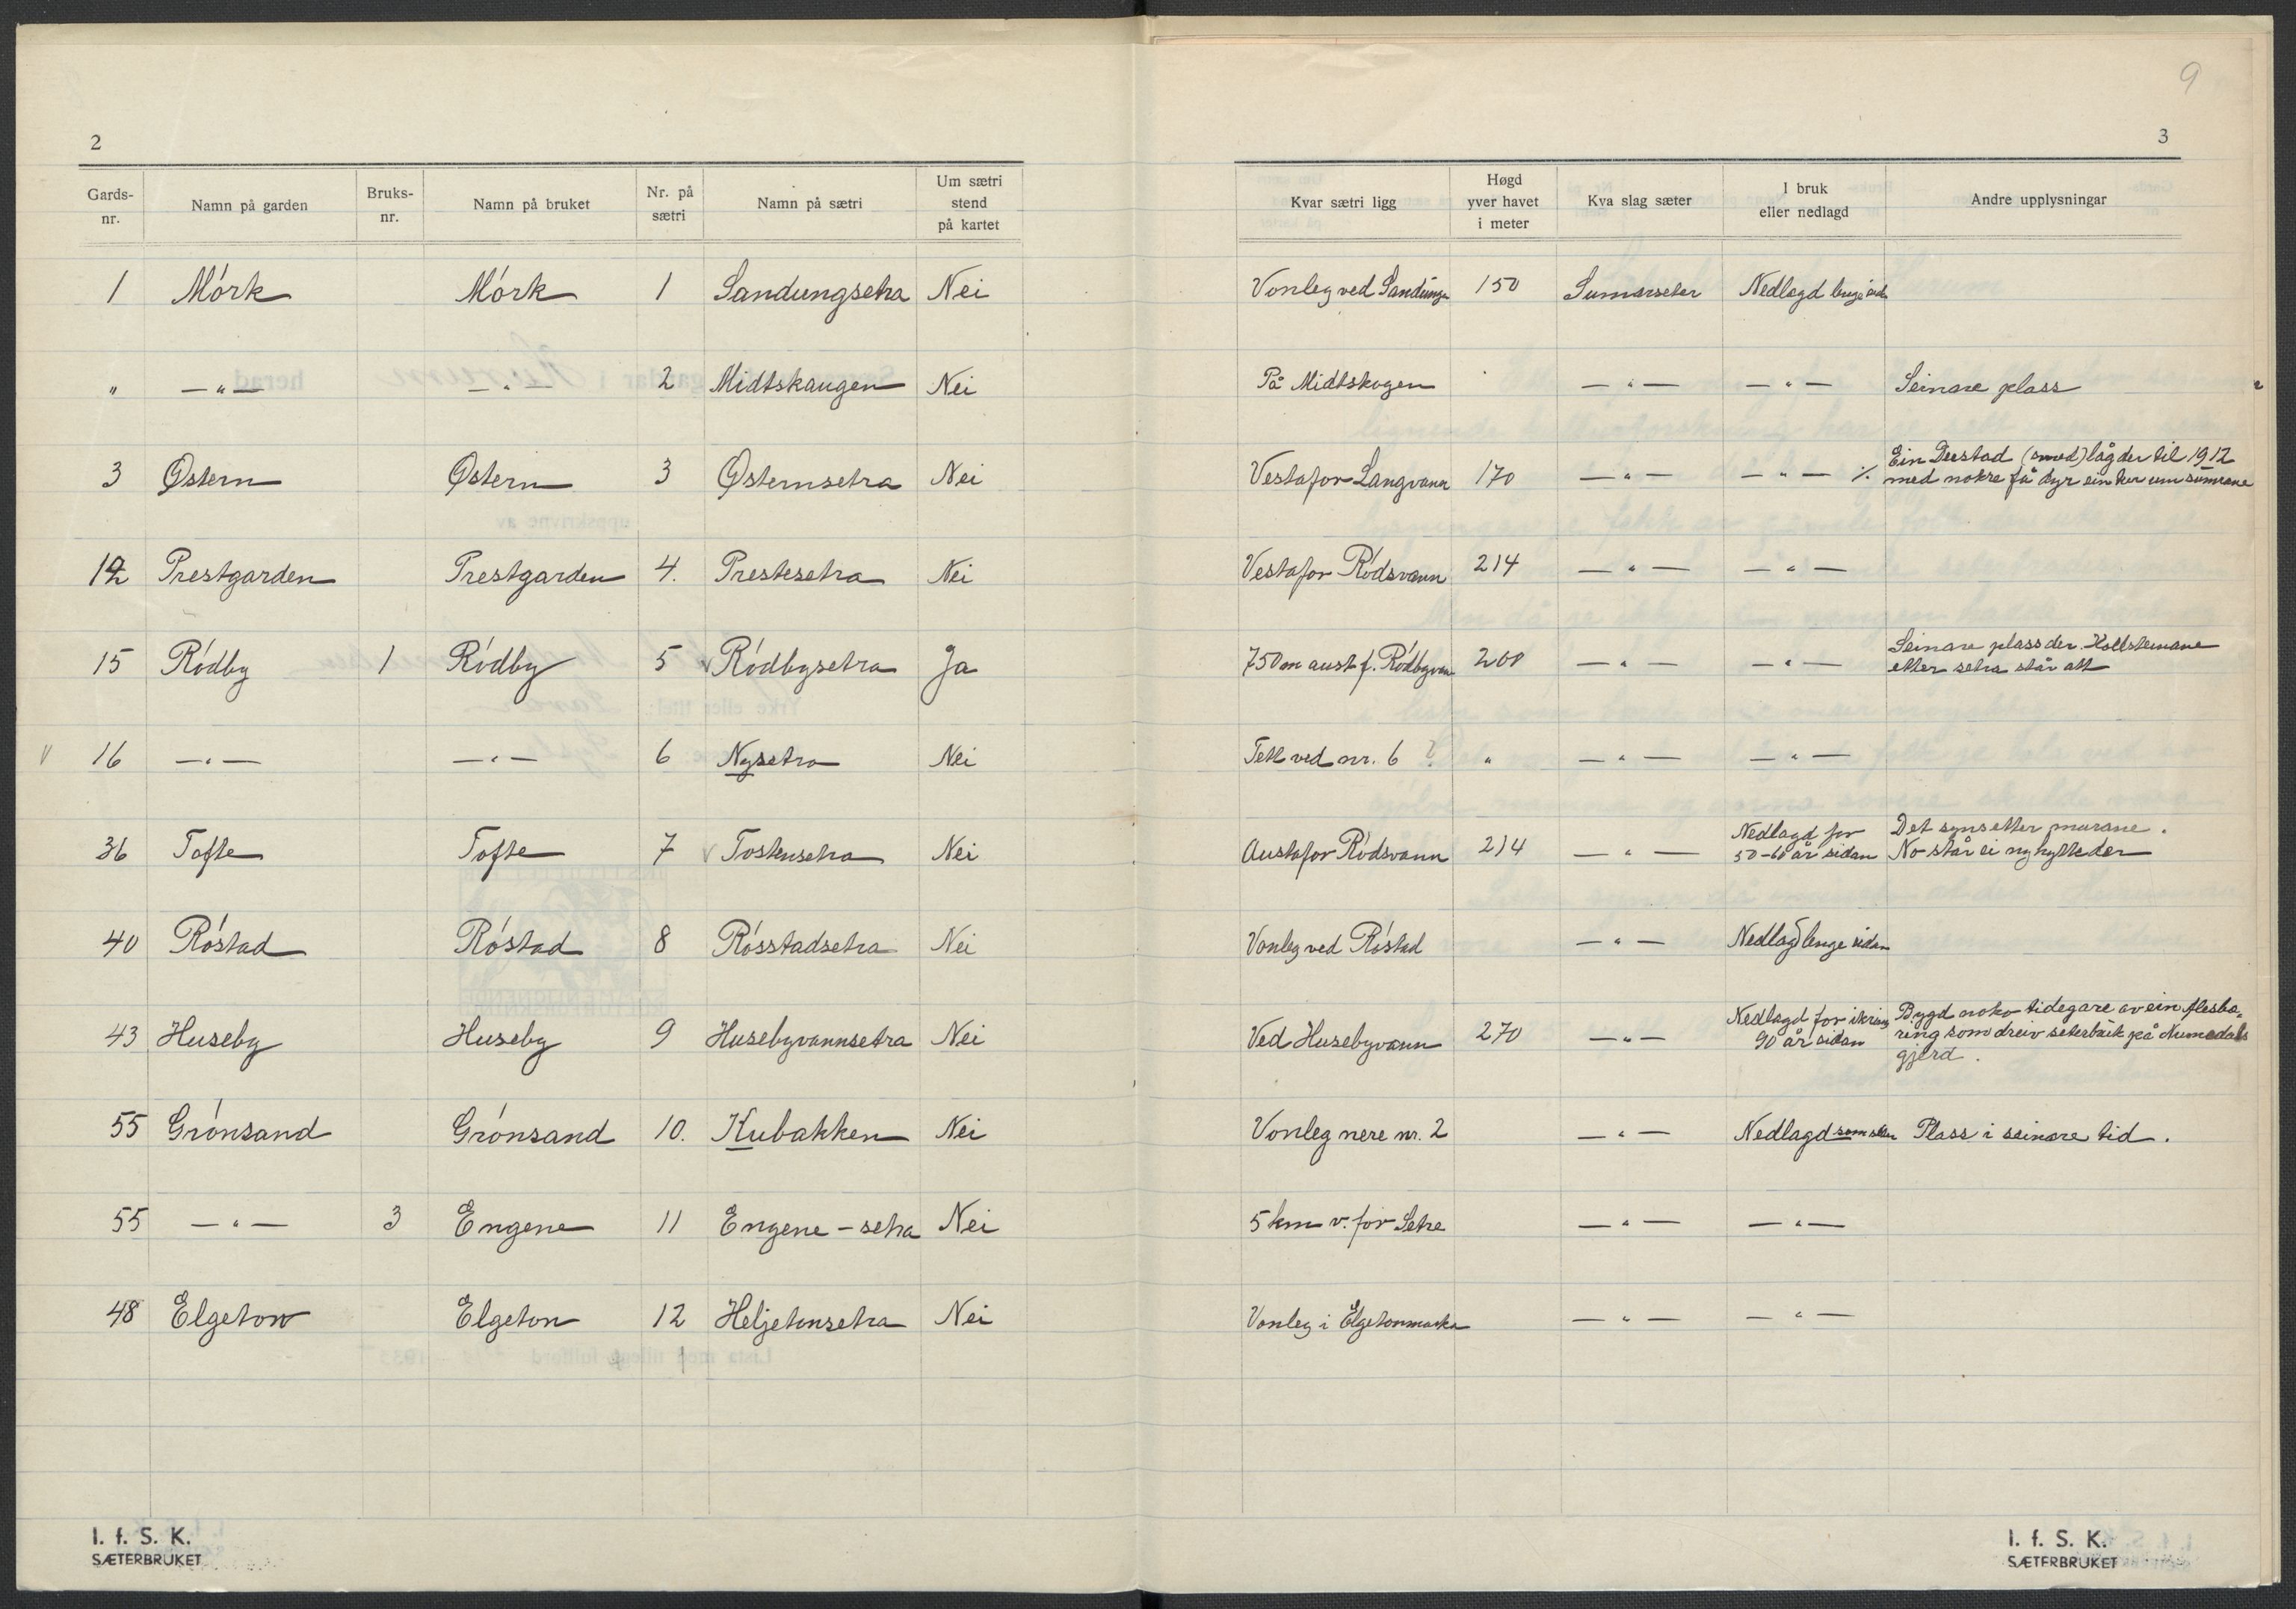 9
2
3
Gards-nr. Namn på garden Bruks-nr. Namn på bruket Nr. på sætri Namn på sætri Um sætri stend på kartet Kvar sætri ligg Høgd yver havet i meter Kva slag sæter I bruk eller nedlagd Andre upplysningar
1 Mórk Mórk 1 Sandungsetra Nei Vonleg ved Sandunga 150 Sumarseter Nedlagd lenge sid
" — " — — " — 2 Midtskaugen Nei På Midtskogen — " — — " — Seinare plass
3 Østern Østern 3 Østernsetra Nei Vestafor Langvann 170 — " — — " — ٪ Ein Deestad (smed) låg der til 1912
med nokre få dyr ein kor um sumrane
12 Prestgarden Prestgarden 4. Prestesetra Nei Vestafor Ródsvann 214 — " — — " —
15 Ródby 1 Ródby 5 v Ródbysetra Ja 750 m aust f. Ródbyvan 200 — " — — " — Seinare plass der.
etter setra står att
v 16 — " — — " — 6 Nysetra Nei Tett ved nr. 6 ? " — " — — " —
36 Tofte Tofte 7 v Tostensetra Nei Austafor Ródsvann 214 — " — Nedlagd for
50-60 år sidan
Det syns etter murane.
No står ei ny hytte der
40 Róstad Róstad 8 Rósstadsetra Nei Vonleg ved Róstad — " — Nedlagd lenge sidan
43 Huseby Huseby 9 Husebyvannsetra Nei Ved Husebyvann 270 — " — Nedlagd for ikring
90 år sidan
Bygd noko tidegare av ein flesbe-
ring som dreiv seterbruk på Numedals
gjerd.
55 Grónsand Grónsand 10. Kubakken Nei Vonleg nere nr. 2 — " — Nedlagd som seter Plass i seinare tid.
55 — " — 3 Engene 11 Engene-setra Nei 5 km v. for Setre — " — — " —
48 Elgeton Elgeton 12 Heljetonsetra Nei Vonleg i Elgetonmarka — " — — " —
I. f. S. K.
SÆTERBRUKET
I. f. S. K.
SÆTERBRUKET